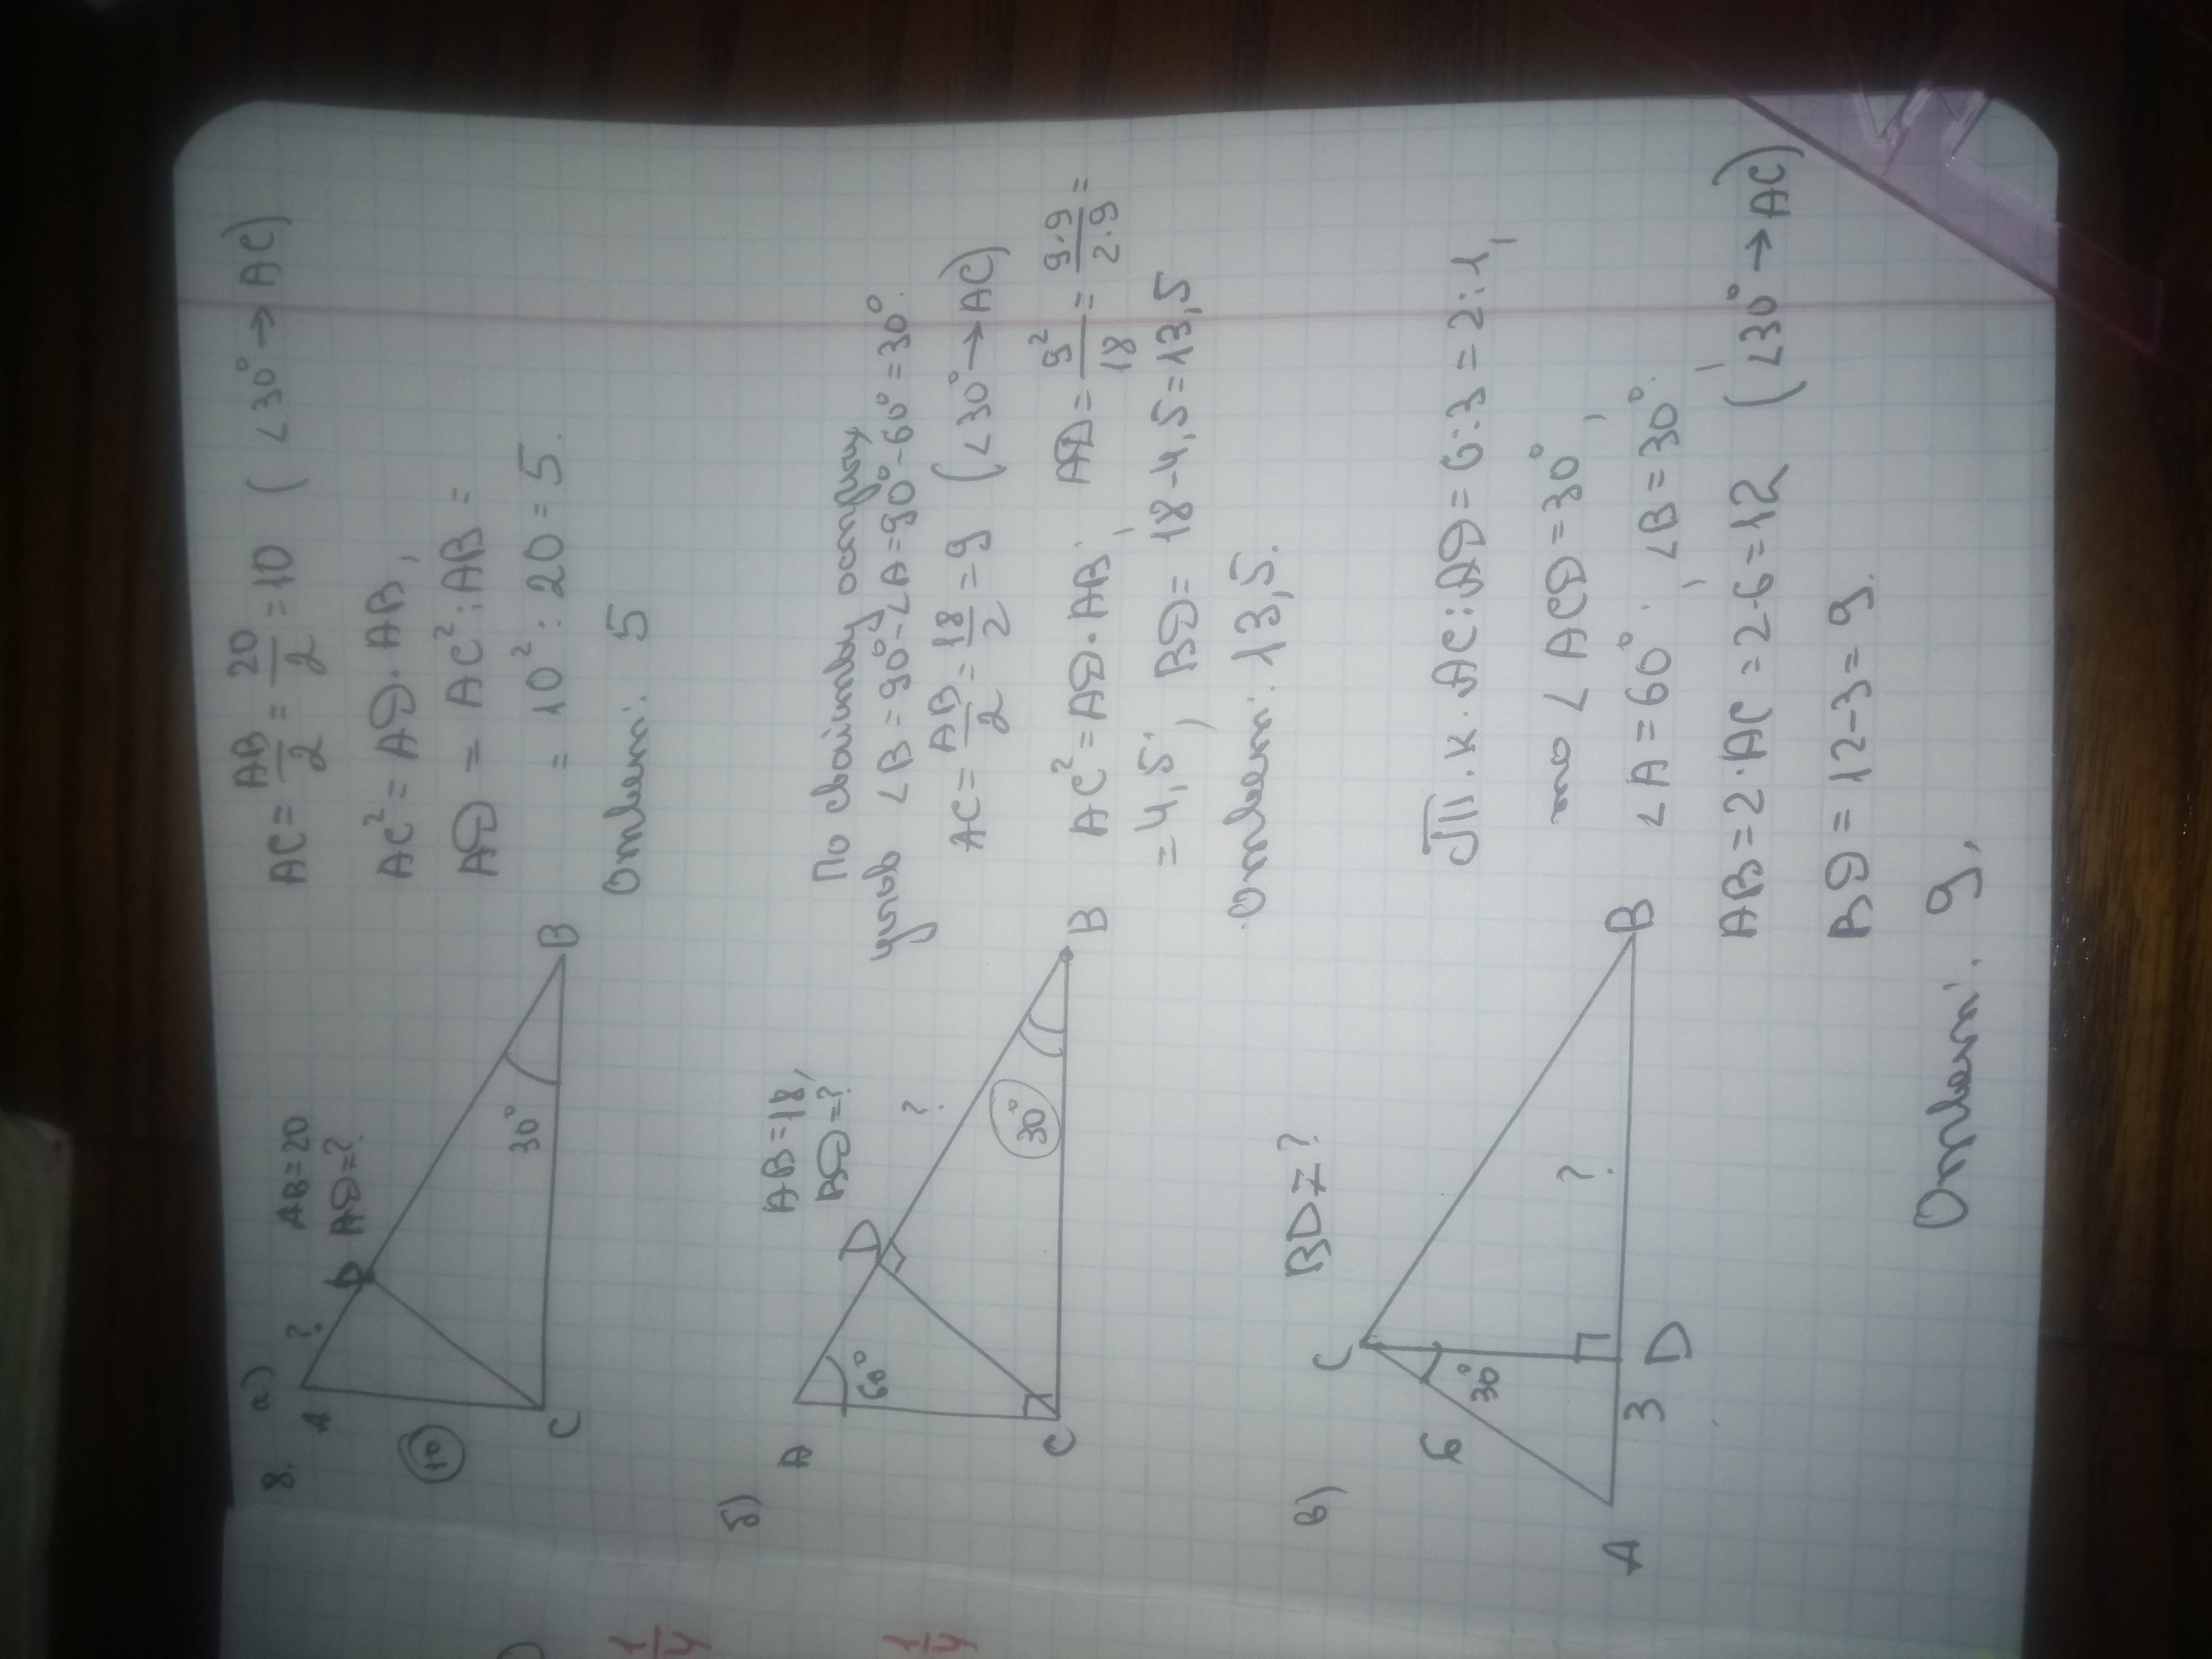 8. а)
A
?
D
AB=20
AD=?
10
30°
C
B
AC = AB/2 = 20/2 = 10 (∠30° → AC)
AC² = AD · AB,
AD = AC² : AB =
= 10² : 20 = 5.
Ответ: 5
б)
A
60°
D
AB=18,
BD=?
?
30°
C
B
По свойству острых
углов ∠B = 90°-∠A = 90°-60° = 30°.
AC = AB/2 = 18/2 = 9 (∠30° → AC)
AC² = AD · AB, AD = 9²/18 = 9·9/2·9 =
= 4,5, BD = 18-4,5 = 13,5
Ответ: 13,5.
в)
BD = ?
C
6
30°
A
3
D
?
B
Т.к. AC : AD = 6:3 = 2:1,
то ∠ACD = 30°,
∠A = 60°, ∠B = 30°,
AB = 2·AC = 2·6 = 12 (∠30° → AC)
BD = 12-3 = 9.
Ответ: 9.
1/4
1/4